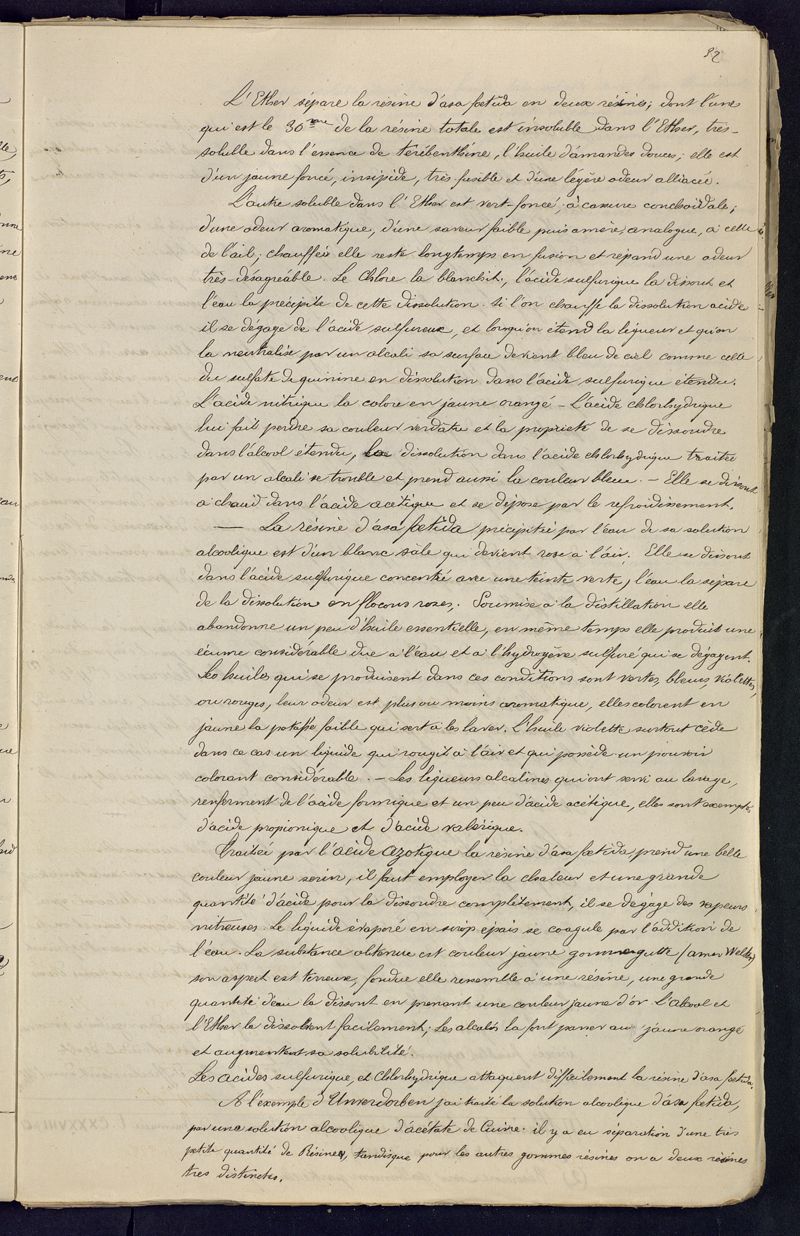 92
L'Ether sépare la résine d'asa foetida en deux résines, dont l'une
qui est le 30me de la résine totale est insoluble dans l'Ether, très-
soluble dans l'essence de terébenthine, l'huile d'amandes douces; elle est
d'un jaune foncé, insipide, très fusible et d'une légère odeur alliacée.
L'autre soluble dans l'Ether est vert-foncé, à cassure conchoïdale;
d'une odeur aromatique, d'une saveur faible puis amère, analogue, à celle
de l'ail; chauffée elle reste longtemps en fusion et répand une odeur
très-désagréable. Le Chlore la blanchit, l'acide sulfurique la dissout et
l'eau la précipite de cette dissolution. Si l'on chauffe la dissolution acide
il se dégage de l'acide sulfureux, et lorsqu'on étend la liqueur et qu'on
la neutralise par un alcali sa surface devient bleu de ciel comme celle
du sulfate de quinine en dissolution dans l'acide sulfurique étendu.
L'acide nitrique la colore en jaune orangé - L'acide Chlorhydrique
lui fait perdre sa couleur verdâtre et la propriété de se dissoudre
dans l'alcool étendu, la dissolution dans l'acide chlorhydrique traitée
par un alcali se trouble et prend aussi la couleur bleue. - Elle se dissout
à chaud dans l'acide acétique et se dépose par le refroidissement.
— La résine d'asa foetida précipitée par l'eau de sa solution
alcoolique est d'un blanc sale qui devient rose à l'air. Elle se dissout
dans l'acide sulfurique concentré avec une teinte verte, l'eau la sépare
de la dissolution en flocons roses. Soumise à la distillation elle
abandonne un peu d'huile essentielle, en même temps elle produit une
écume considérable due à l'eau et à l'hydrogène sulfuré qui se dégagent.
Les huiles qui se produisent dans ces conditions sont vertes, bleues, violettes,
ou rouges, leur odeur est plus ou moins aromatique, elles colorent en
jaune la potasse faible qui sert à les laver. L'huile violette surtout cède
dans ce cas un liquide qui rougit à l'air et qui possède un pouvoir
colorant considérable. - Les liqueurs alcalines qui ont servi au lavage,
renferment de l'acide formique et un peu d'acide acétique, elles sont exemptes
d'acide propionique et d'acide valérique.
Traitée par l'acide azotique la résine d'asa foetida prend une belle
couleur jaune serin, il faut employer la chaleur et une grande
quantité d'acide pour la dissoudre complètement, il se dégage des vapeurs
nitreuses. Le liquide évaporé en sirop épais se coagule par l'addition de
l'eau. La substance obtenue est couleur jaune gomme gutte (amer Welther)
son aspect est terreux, fondue elle ressemble à une résine, une grande
quantité d'eau la dissout en prenant une couleur jaune d'or. L'alcool et
l'Ether le dissolvent facilement; les alcalis la font passer au jaune orangé
et augmentent sa solubilité.
Les acides sulfurique, et Chlorhydrique attaquent difficilement la résine d'asa foetida.
A l'exemple d'Unverdorben j'ai traité la solution alcoolique d'asa foetida,
par une solution alcoolique d'acétate de Cuivre. il y a eu séparation d'une très
petite quantité de Résine, tandisque pour les autres gommes résines on a deux résines
très distinctes.